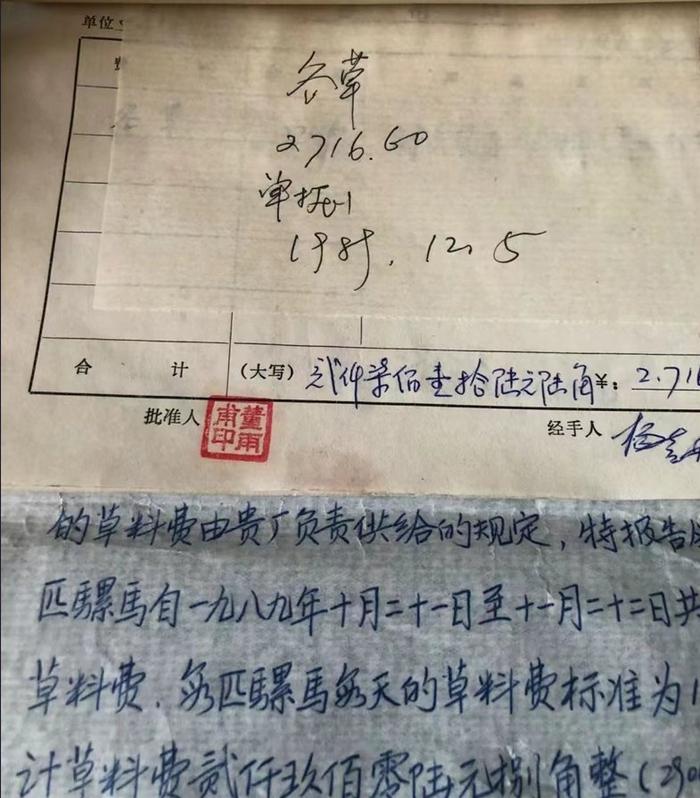 单位
草
2716.60
单据1
1989.12.5
合 计 (大写) 弍仟柒佰壹拾陆元陆角 ¥: 2.716
批准人 董雨甫印 经手人 杨
的草料费由贵厂负责供给的规定，特报告
匹骡馬自一九八九年十月二十一日至十一月二十二日共
草料费．每匹骡馬每天的草料费标准为1
计草料费贰仟玖佰零陆元捌角整(290